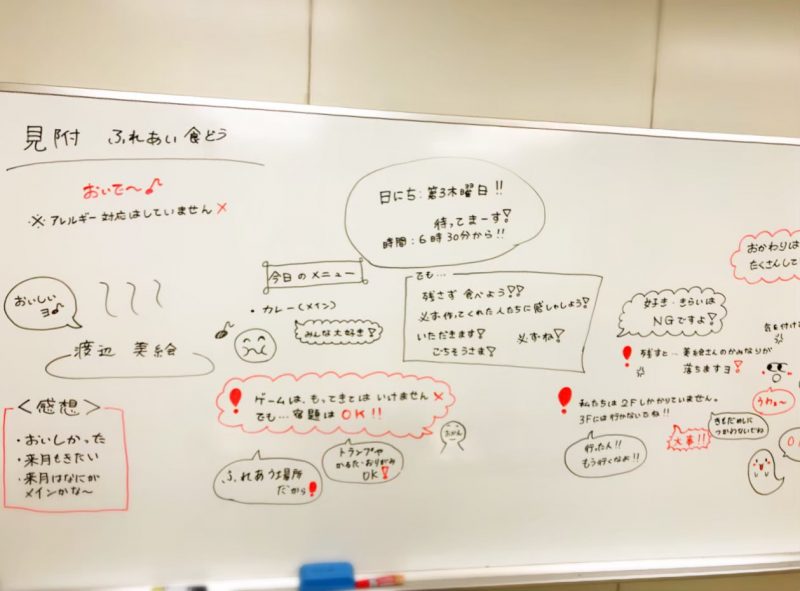 見附 ふれあい食どう
おいで～♪
※アレルギー対応はしていません×
日にち:第3木曜日!!
待ってまーす!
時間:6時30分から!!
おいしいヨ♪
渡辺 美絵
＜感想＞
・おいしかった
・来月もきたい
・来月はなにが
メインかな～
今日のメニュー
・カレー(メイン)
みんな大好き!
でも…
残さず食べよう!!
必ず作ってくれた人たちに感しゃしよう!
いただきます! 必ずね!
ごちそうさま!
ゲームは、もってきてはいけません×
でも…宿題はOK!!
ふれあう場所
だから!
トランプや
かるた・おりがみ
OK!
おかわりは
たくさんして
好き・きらいは
NGですよ!
気を付ける
残すと…美絵さんのかみなりが
落ちますヨ!
うわぁ～
私たちは2Fしかかりていません。
3Fには行かないでね!!
行ったん!!
もう行くなよ!!
大事!!
きもだめしに
つかわないでね